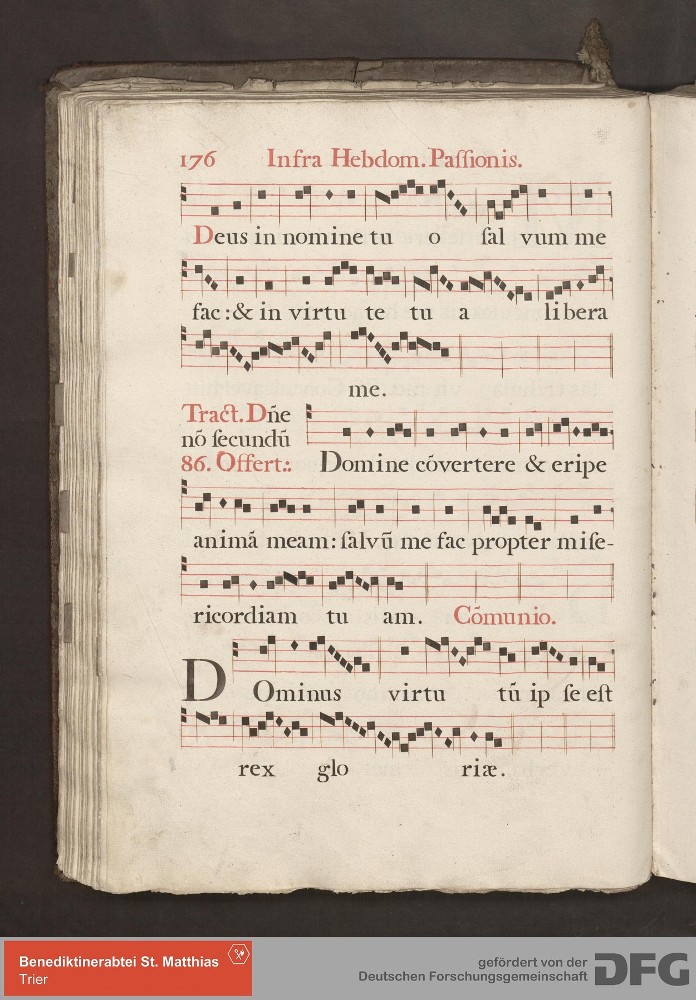 176 Infra Hebdom. Paſſionis.
Deus in nomine tu o ſal vum me
fac: & in virtu te tu a libera
me.
Tract. Dñe
nō ſecundū
86. Offert:. Domine cōvertere & eripe
animā meam: ſalvū me fac propter miſe-
ricordiam tu am. Cōmunio.
DOminus virtu tū ip ſe eſt
rex glo riæ.
Benediktinerabtei St. Matthias
Trier
gefördert von der
Deutschen Forschungsgemeinschaft
DFG